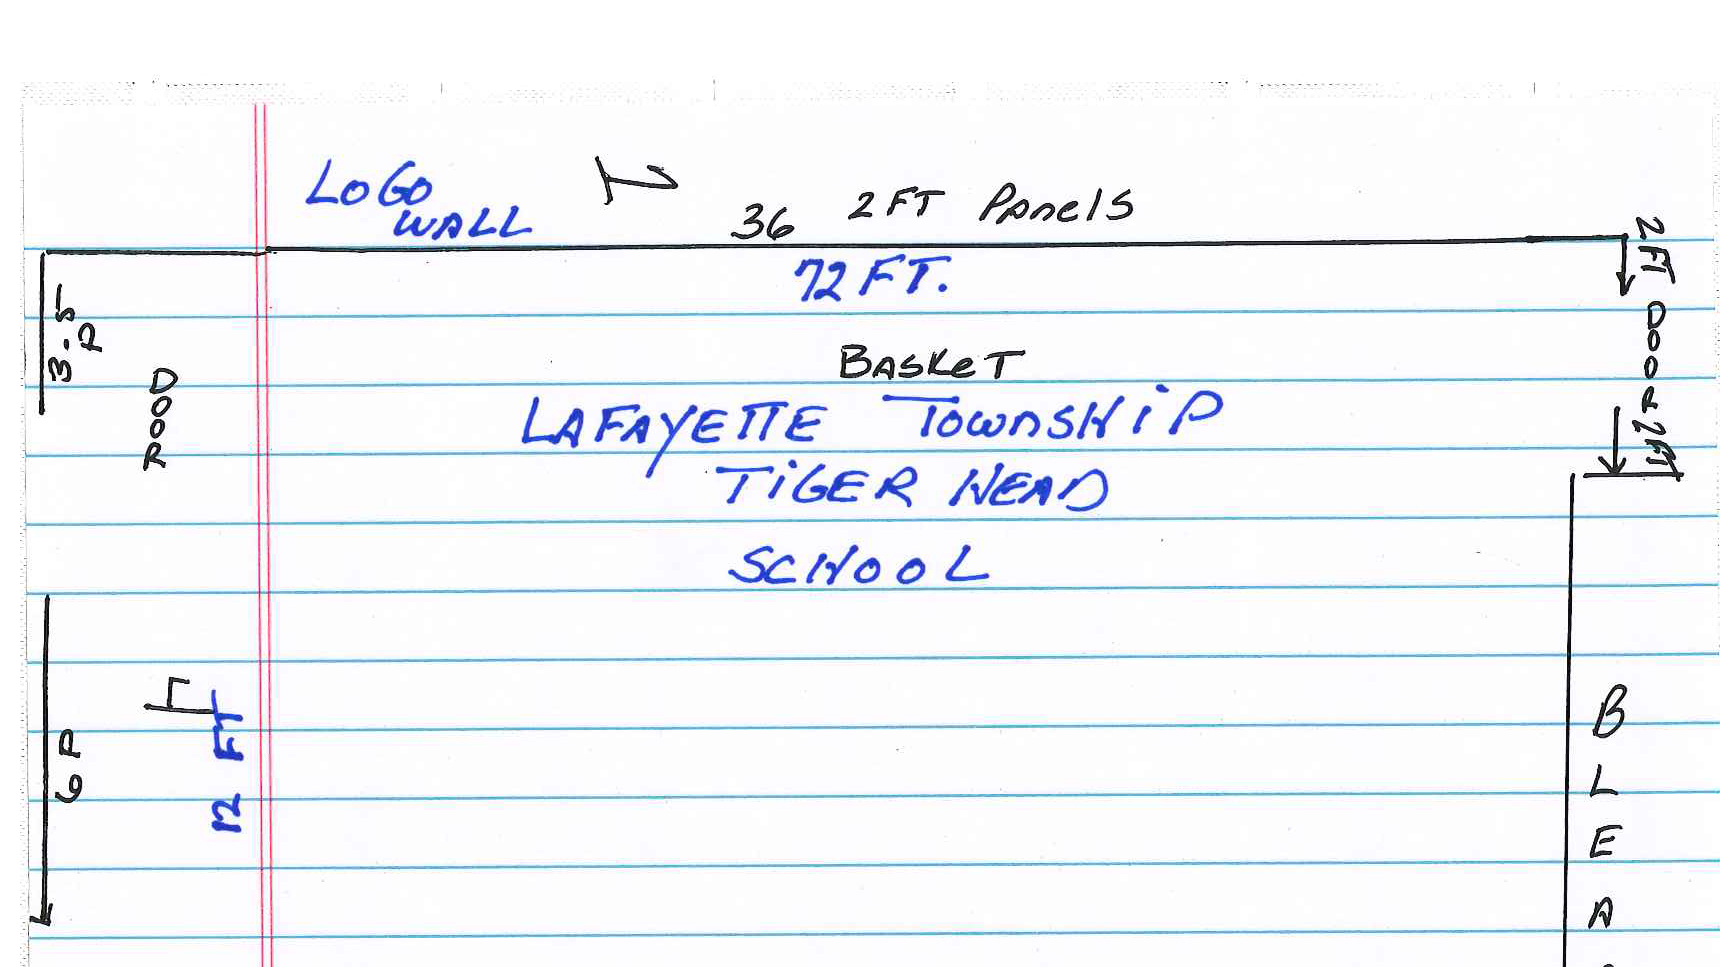 LOGO
WALL
36 2FT Panels
72 FT.
2 FT DOOR 2 FT
3-5
P
DOOR
BASKET
LAFAYETTE TOWNSHIP
TIGER HEAD
SCHOOL
6 P
12 FT
B
L
E
A